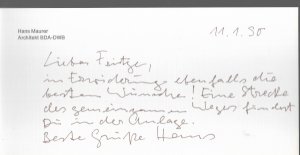 Hans Maurer
Architekt BDA-DWB
11.1.90
Lieber
in Erwiderung ebenfalls die
besten Wünsche! Eine Strecke
des gemeinsamen Weges findest
Du in der Anlage.
Beste Grüße Hans